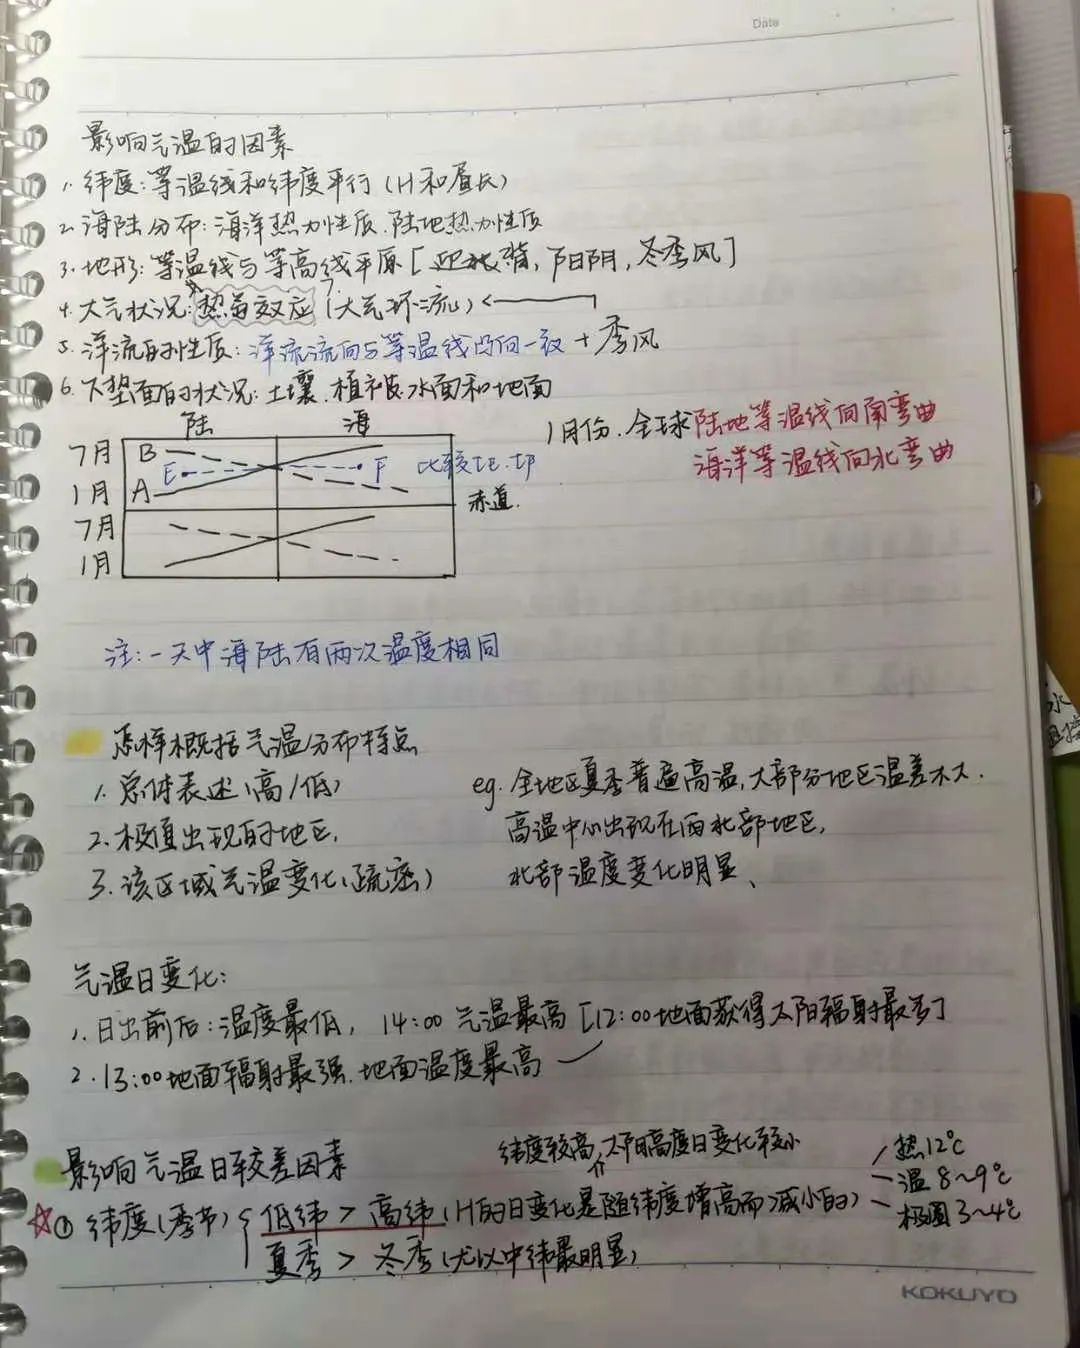 Date
影响气温的因素
1. 纬度：等温线和纬度平行（H和昼长）
2. 海陆分布：海洋热力性质、陆地热力性质
3. 地形：等温线与等高线平原［迎背，阳阴，冬季风］
4. 大气状况：热岛效应（大气环流）
5. 洋流的性质：洋流流向与等温线凸向一致 + 季风
6. 下垫面的状况：土壤、植被、水面和地面
陆 海
1月份、全球陆地等温线向南弯曲
海洋等温线向北弯曲
7月 B
E F 比较
1月 A
赤道
7月
1月
注：一天中海陆有两次温度相同
怎样概括气温分布特点
1. 总体表述（高/低）
2. 极值出现的地区，
3. 该区域气温变化（疏密）
eg. 全地区夏季普遍高温，大部分地区温差不大．
高温中心出现在西北部地区，
北部温度变化明显、
气温日变化：
1. 日出前后：温度最低，14:00 气温最高［12:00地面获得太阳辐射最多］
2. 13:00地面辐射最强、地面温度最高
影响气温日较差因素
纬度较高，太阳高度日变化较小
热12℃
温 8~9℃
极圈 3~4℃
① 纬度（季节）
低纬 > 高纬（H的日变化是随纬度增高而减小的）
夏季 > 冬季（尤以中纬最明显）
KOKUYO